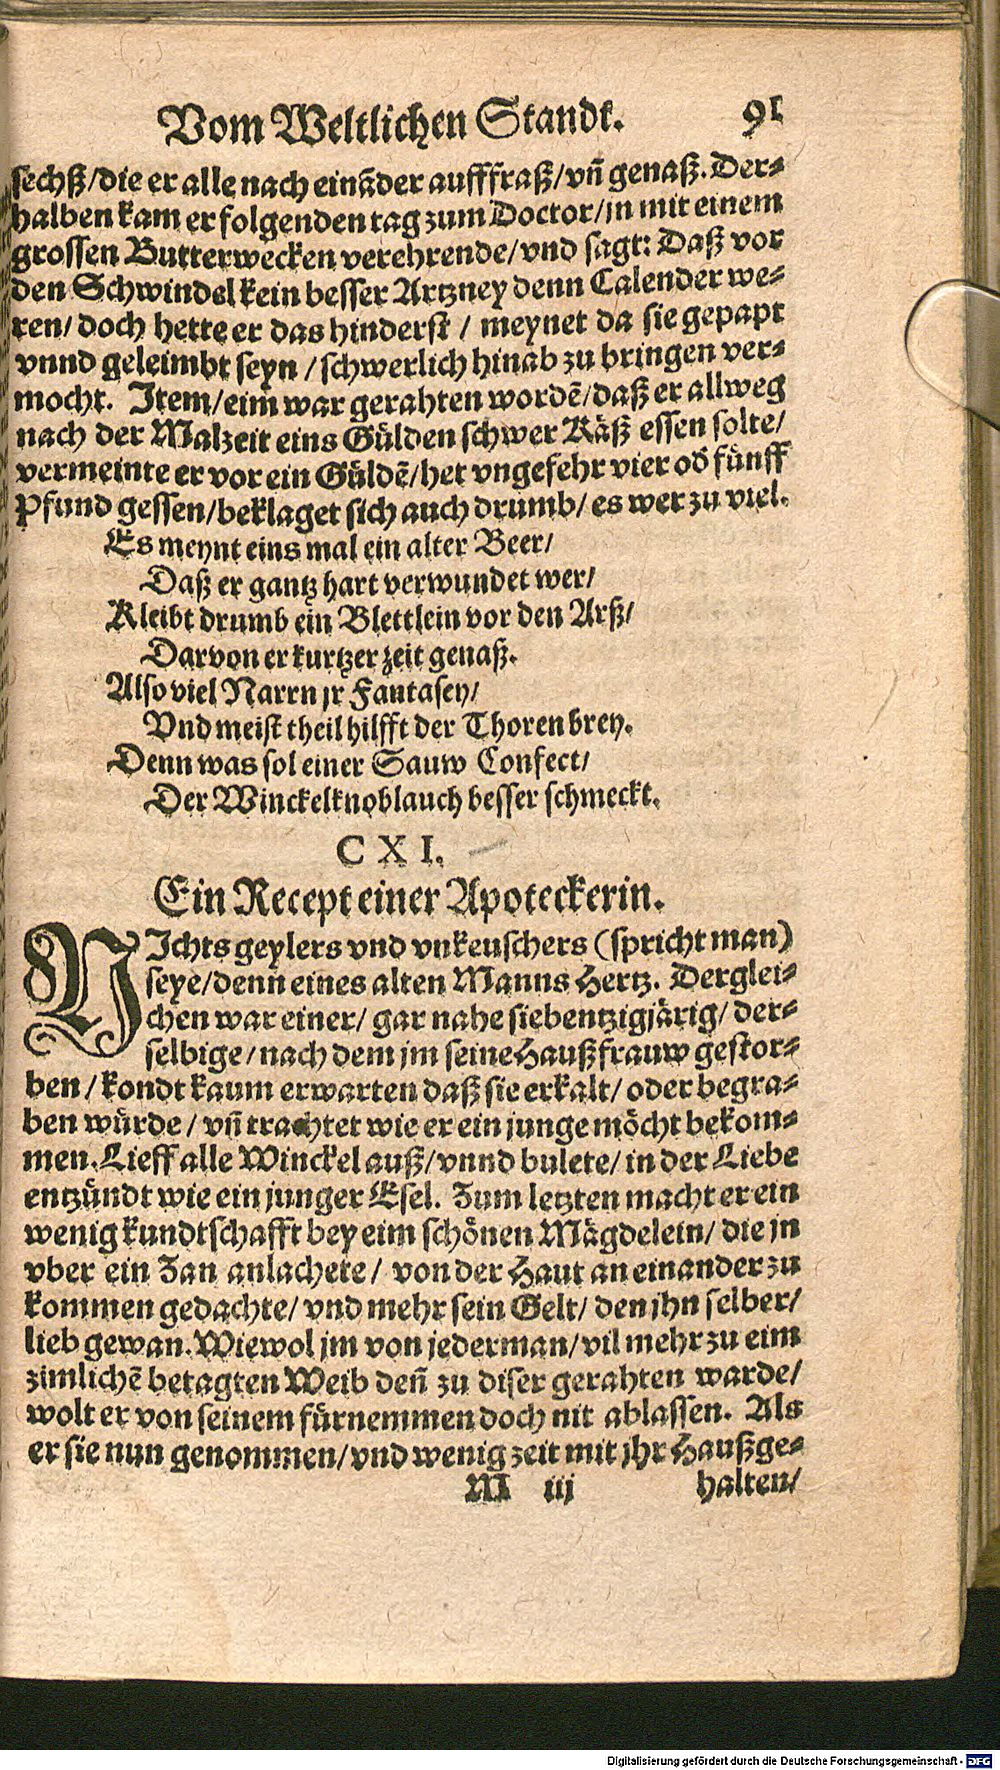 Vom Weltlichen Standt. 91
sechß/die er alle nach einãder aufffraß/vñ genaß. Der⸗
halben kam er folgenden tag zum Doctor/jn mit einem
grossen Butterwecken verehrende/vnd sagt: Daß vor
den Schwindel kein besser Artzney denn Calender we⸗
ren/ doch hette er das hinderst / meynet da sie gepapt
vnnd geleimbt seyn / schwerlich hinab zu bringen ver⸗
mocht. Item/eim war gerahten wordẽ/daß er allweg
nach der Malzeit eins Gülden schwer Käß essen solte/
vermeinte er vor ein Güldẽ/het vngefehr vier od̕ fünff
Pfund gessen/beklaget sich auch drumb/ es wer zu viel.
Es meynt eins mal ein alter Beer/
Daß er gantz hart verwundet wer/
Kleibt drumb ein Blettlein vor den Arß/
Darvon er kurtzer zeit genaß.
Also viel Narrn jr Fantasey/
Vnd meist theil hilfft der Thoren brey.
Denn was sol einer Sauw Confect/
Der Winckelknoblauch besser schmeckt.
CXI.
Ein Recept einer Apoteckerin.
NIchts geylers vnd vnkeuschers (spricht man)
seye/denn eines alten Manns Hertz. Derglei⸗
chen war einer/ gar nahe siebentzigjärig/ der⸗
selbige/nach dem jm seine Haußfrauw gestor⸗
ben / kondt kaum erwarten daß sie erkalt/ oder begra⸗
ben würde / vñ trachtet wie er ein junge möcht bekom⸗
men. Lieff alle Winckel auß/vnnd bulete/ in der Liebe
entzündt wie ein junger Esel. Zum letzten macht er ein
wenig kundtschafft bey eim schönen Mägdelein/ die jn
vber ein Zan anlachete/ von der Haut an einander zu
kommen gedachte/ vnd mehr sein Gelt/ den jhn selber/
lieb gewan. Wiewol jm von jederman/vil mehr zu eim
zimlichẽ betagten Weib deñ zu diser gerahten warde/
wolt er von seinem fürnemmen doch nit ablassen. Als
er sie nun genommen/vnd wenig zeit mit jhr Haußge⸗
M iij halten/
Digitalisierung gefördert durch die Deutsche Forschungsgemeinschaft - DFG